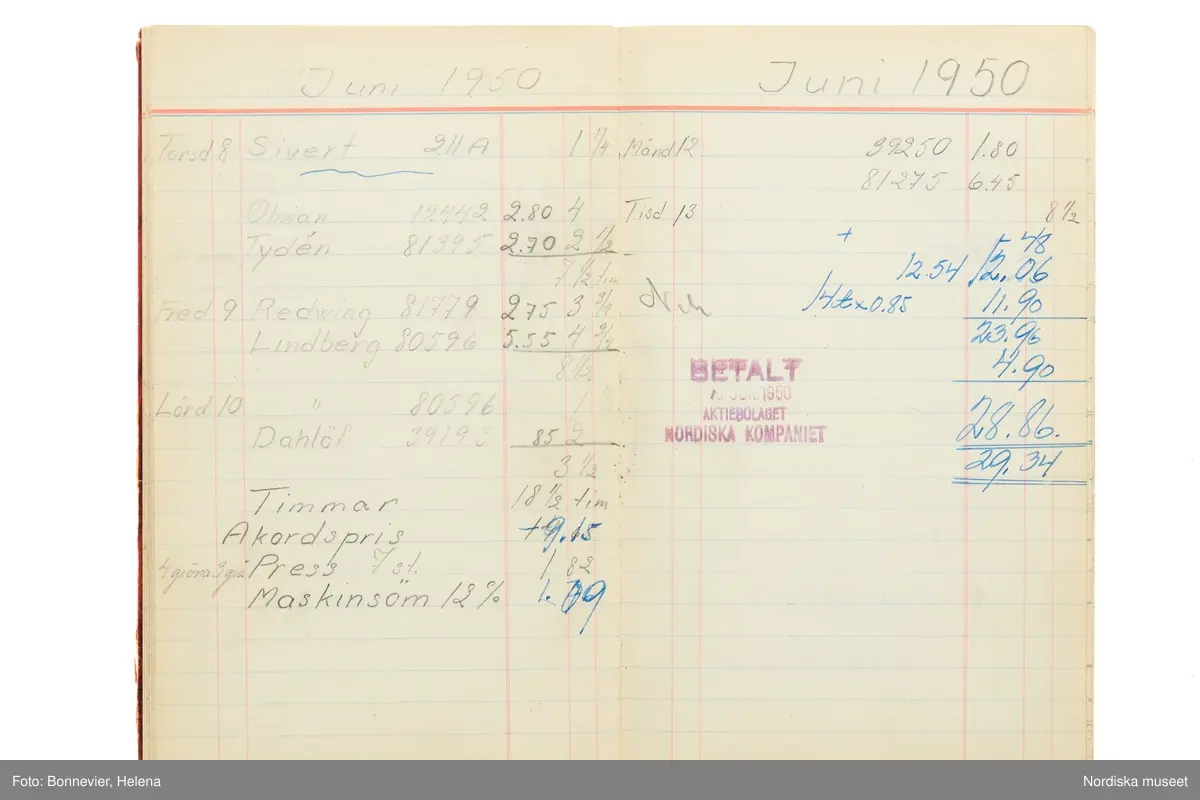 Juni 1950
Torsd 8 Sivert 211 A 1 1/4
Öhman 12442 2.80 4
Tydén 81395 2.70 2 1/2
7 1/2 tim
Fred 9 Redwing 81779 2 75 3 3/4
Lindberg 80596 5.55 4 3/4
8 1/2
Lörd 10 " 80596 1
Dahlöf 39193 85 2
3 1/2
Timmar 18 1/2 tim
Akordspris +9.15
4 gröna 3 grå Press 7 st. 1 82
Maskinsöm 12% 1.
Juni 1950
Månd 12 39250 1.80
81275 6.45
Tisd 13 8 1/2
+ 48
12.54 12.06
14t x 0.85 11.90
23.96
4.90
28.86.
29.34
BETALT
JUN. 1950
AKTIEBOLAGET
NORDISKA KOMPANIET
Foto: Bonnevier, Helena
Nordiska museet